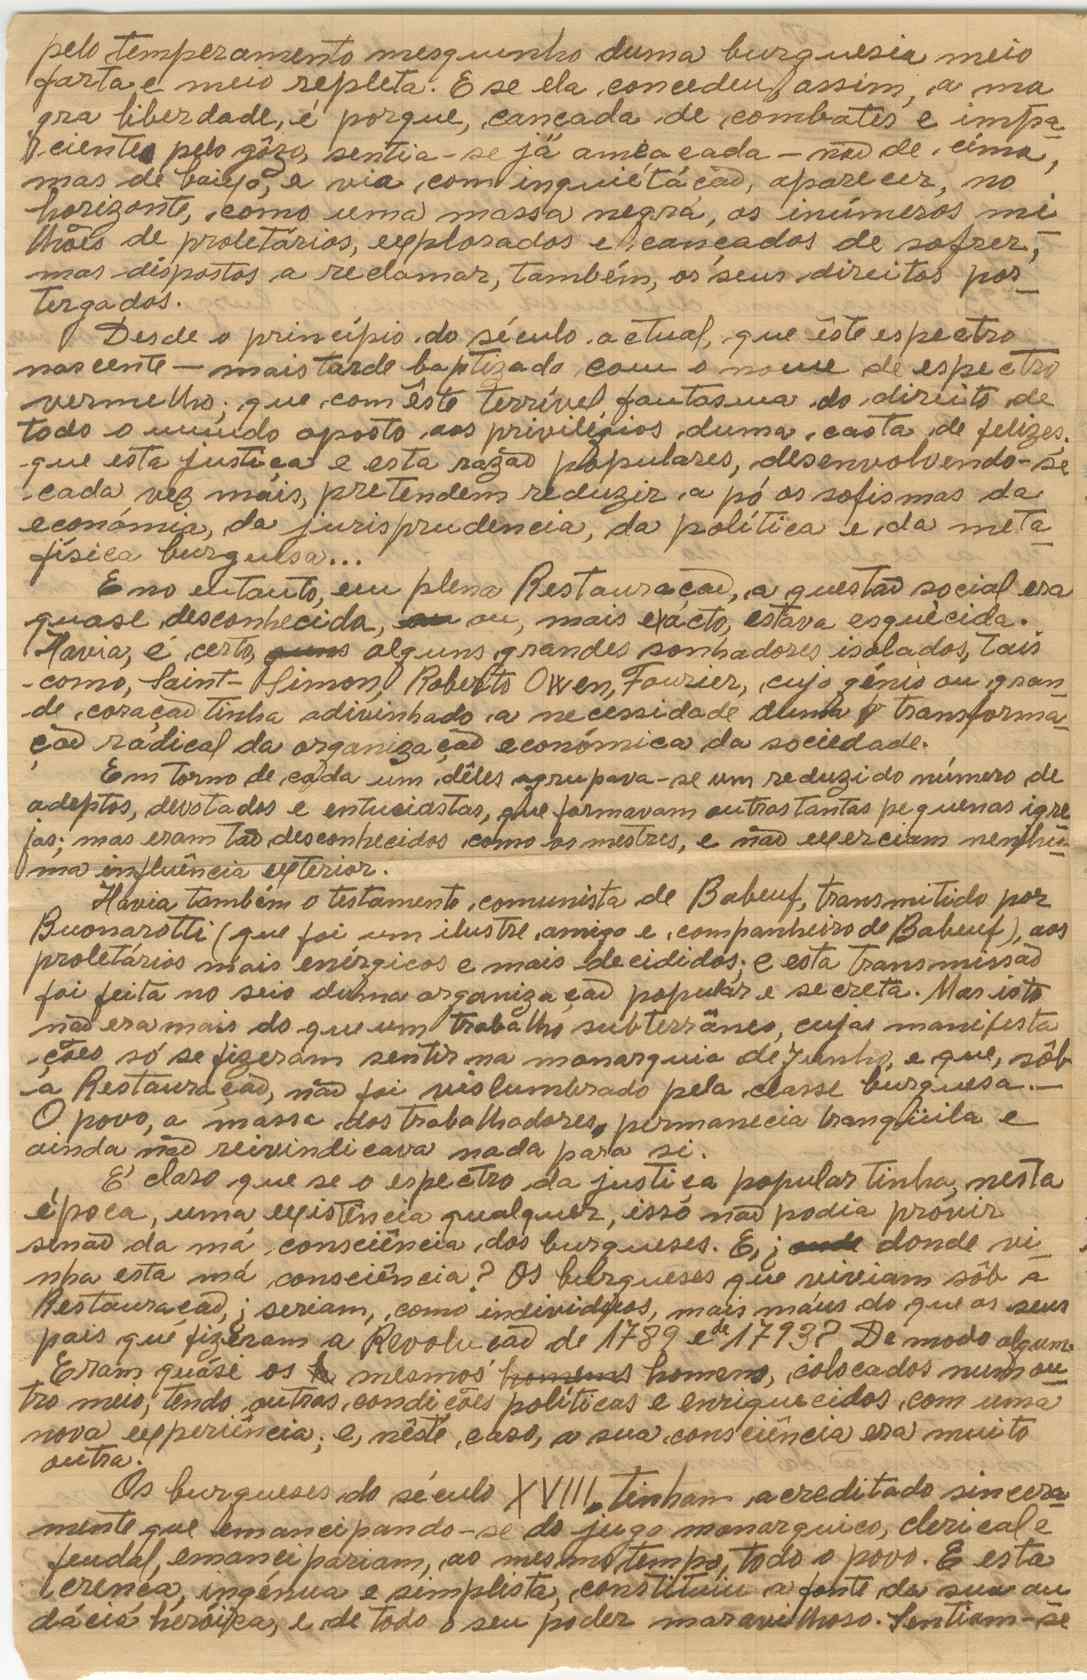 pelo temperamento mesquinho duma burguesia meio
farta e meio repleta. E se ela concedeu, assim, a ma
gra liberdade, é porque, cançada de combates e impa-
ciente pelo gôzo, sentia-se já ameaçada — não de cima,
mas de baixo, e via, com inquietáção, aparecer, no
horizonte, como uma massa negra, os inúmeros mi
lhões de proletários, explorados e cançados de sofrer,
mas dispostos a reclamar, também, os seus direitos pos-
tergados.
Desde o princípio do século actual, que êste espectro
nascente — mais tarde baptizado com o nome de espectro
vermelho; que com êste terrível fantasma do direito de
todo o mundo oposto aos privilégios duma casta de felizes.
que esta justiça e esta razão populares, desenvolvendo-se
cada vez máis, pretendem reduzir a pó os sofismas da
económia, da jurisprudencia, da política e da meta-
física burguesa...
E no entanto, em plena Restauração, a questão social era
quase desconhecida, ou, mais exácto, estava esquècida.
Havia, é certo, alguns grandes sonhadores isolados, tais
como, Saint-Simon, Roberto Owen, Fourier, cujo génio ou gran
de coração tinha adivinhado a necessidade duma transforma-
ção rádical da organização económica da sociedade.
Em torno de cada um dêles agrupava-se um reduzido número de
adeptos, devotados e entuciastas, que formavam outras tantas pequenas igre
jas; mas eram tão desconhecidos como os mestres, e não exerciam nenhu-
ma influência exterior.
Havia também o testamento comunista de Babeuf, transmitido por
Buonarotti (que foi um ilustre amigo e companheiro de Babeuf), aos
proletários mais enérgicos e mais decididos; e esta transmissão
foi feita no seio duma organização popular e secreta. Mas isto
não era mais do que um trabalho subterrâneo, cujas manifesta
ções só se fizeram sentir na monarquia de Junho, e que, sôb
a Restauração, não foi vislumbrado pela classe burguesa. —
O povo, a massa dos trabalhadores, permanecia tranqüila e
ainda não reivindicava nada para si.
É claro que se o espectro da justiça popular tinha, nesta
época, uma existência qualquer, isso não podia provir
senão da má consciência dos burgueses. E, ¿ donde vi-
nha esta má consciência? Os burgueses que viviam sôb a
Restauração, ¿ seriam, como individuos, mais máus do que os seus
pais que fizeram a Revolução de 1789 e de 1793? De modo algum.
Eram quási os mesmos homens, colocados num ou-
tro meio, tendo outras condições políticas e enriquecidos com uma
nova experiência; e, nêste caso, a sua consciência era muito
outra.
Os burgueses do século XVIII tinham acreditado sincera-
mente que emancipando-se do jugo monarquico, clerical e
feudal, emancipariam, ao mesmo tempo, todo o povo. E esta
crença, ingénua e simplista, constituiu a fonte da sua au
dácia heróica, e de todo o seu poder maravilhoso. Sentiam-se